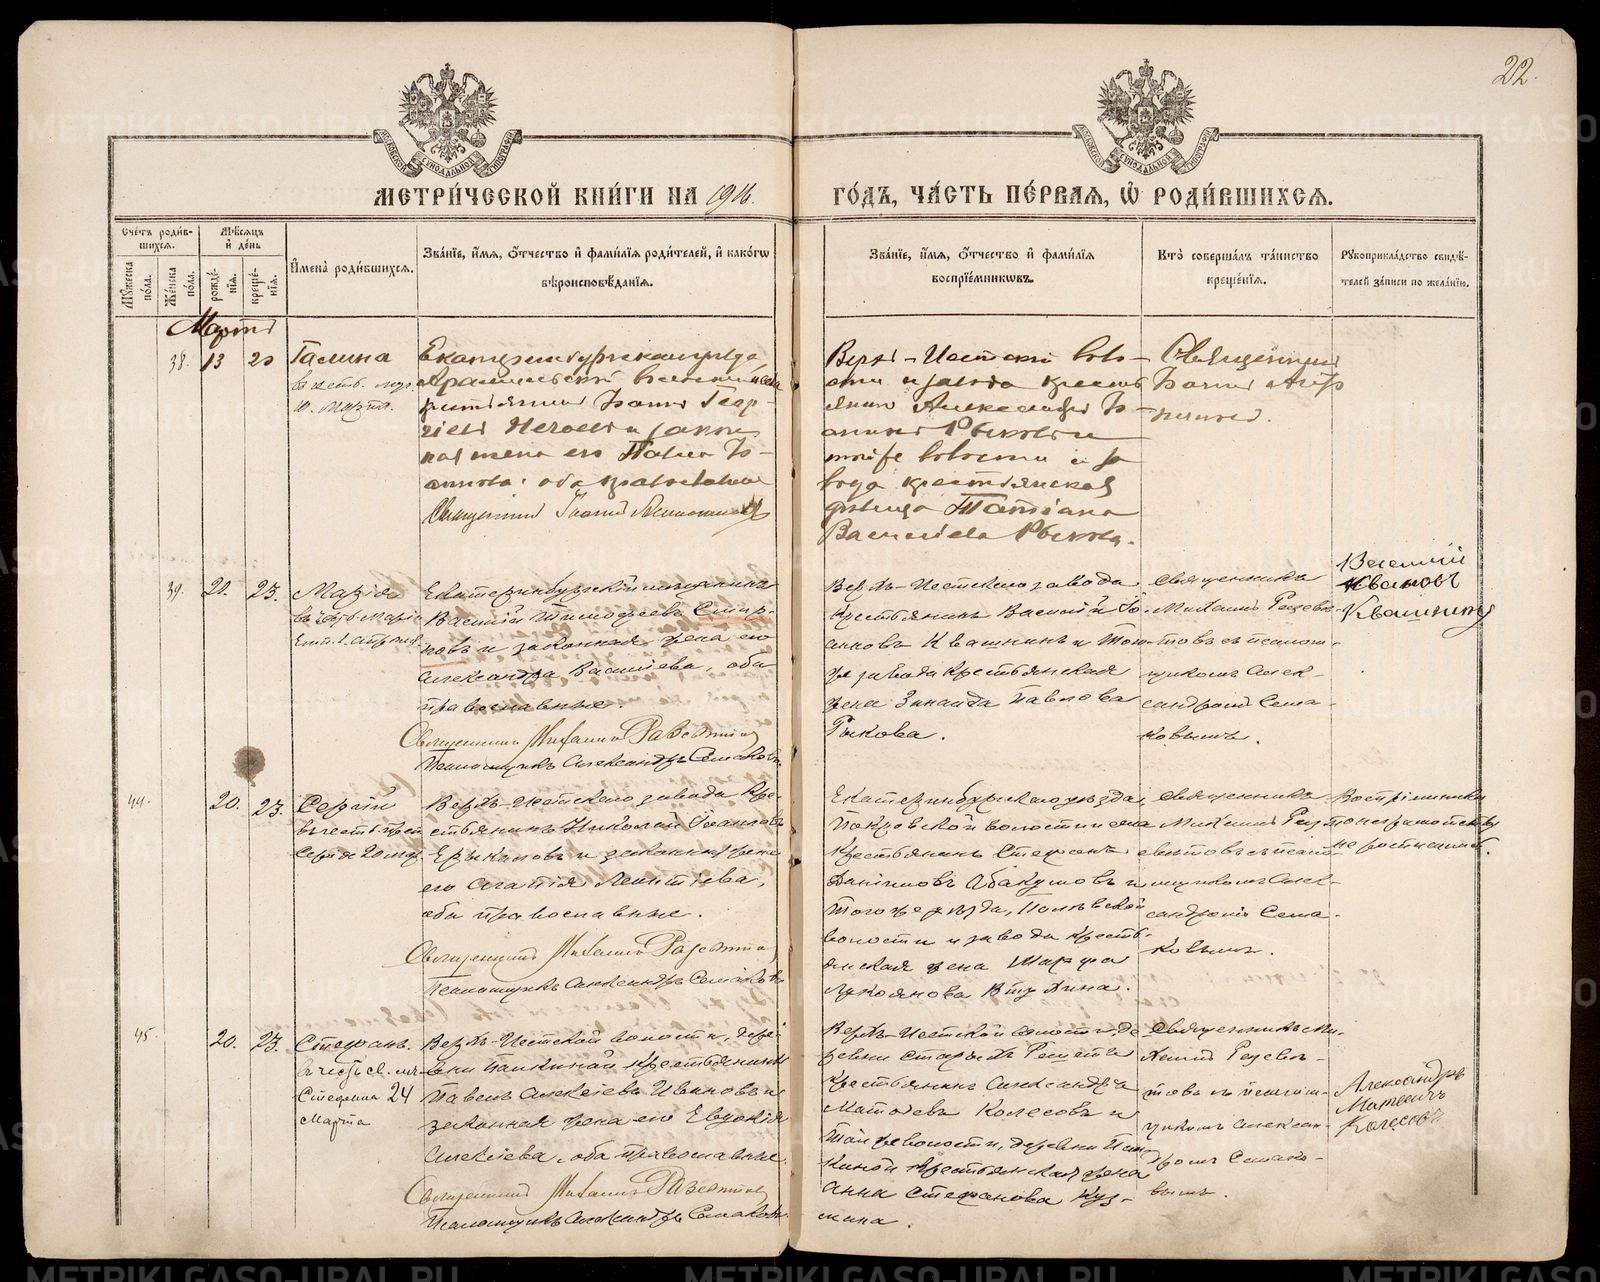 22.
МОСКОВСКОЙ СѴНОДАЛЬНОЙ ТИПОГРАФІИ
МОСКОВСКОЙ СѴНОДАЛЬНОЙ ТИПОГРАФІИ
МЕТРИ́ЧЕСКОЙ КНИ́ГИ НА 1916.
ГО́ДЪ, ЧА́СТЬ ПЕ́РВАЯ, Ѡ҆ РОДИ́ВШИХСЯ.
Сче́тъ роди́в-
шихся.
Мꙋ́жеска по́ла.
Же́нска по́ла.
Мѣ́сяцъ
и҆ де́нь
рожде́-
нїя.
креще́-
нїя.
И҆мена̀ роди́вшихся.
Зва́нїе, и҆́мя, ѻ҆́тчество и҆ фами́лїя роди́телей, и҆ како́гѡ
вѣроисповѣ́данїя.
Зва́нїе, и҆́мя, ѻ҆́тчество и҆ фами́лїя
воспрїе́мникѡвъ.
Кто̀ соверша́лъ та́инство
креще́нїя.
Рꙋкоприкла́дство свидѣ́-
телей за́писи по жела́нїю.
Мартъ
38. 13 20 Галина
Екатеринбургскаго уѣзда
Арамильской волости и села
крестьянинъ Іоаннъ Геор-
гіевъ и закон-
ная жена его Павла Іо-
аннова, оба православные
Священникъ Іоаннъ
Верхъ-Исетской воло-
сти и завода кресть-
янинъ Александръ Іо-
анновъ Рыковъ и
тойже волости и за
вода крестьянская
дѣвица Татіана
Васильева Рыкова.
Священникъ
Іоаннъ
39. 20. 23. Марія
Екатеринбургскій мѣщанинъ
Василій Тимоѳеевъ Смир-
новъ и законная жена его
Александра Васильева, оба
православные.
Священникъ Михаилъ
Псаломщикъ Александръ Семаковъ
Верхъ-Исетскаго завода
крестьянинъ Василій Іо-
анновъ Квашнинъ и того-
же завода крестьянская
жена Зинаида Павлова
Рыкова.
Священникъ
Михаилъ
товъ съ псалом-
щикомъ Алек-
сандромъ Сема-
ковымъ.
Василій
Ивановъ
Квашнинъ
44. 20. 23. Сергій
въ честь преп.
Сергія 20 мар.
Верхъ-Исетскаго завода кре-
стьянинъ Николай Іоанновъ
и законная жена
его Агапія Леонтьева,
оба православные.
Священникъ Михаилъ
Псаломщикъ Александръ Семаковъ
Екатеринбургскаго уѣзда,
Покровской волости и села
крестьянинъ Стефанъ
Даниловъ Абакумовъ и
того же уѣзда,
волости и завода кресть-
янская жена Марѳа
Лукоянова
Священникъ
Михаилъ
съ псалом-
щикомъ Алек-
сандромъ Сема-
ковымъ.
Воспріемники
по неграмотству
не росписались.
45. 20. 23. Стефанъ.
въ честь св. муч.
Стефана 24
Марта
Верхъ-Исетской волости, дерев-
ни Палкиной крестьянинъ
Павелъ Алексѣевъ Ивановъ и
законная жена его Евдокія
Алексѣева, оба православные.
Священникъ Михаилъ
Псаломщикъ Александръ Семаковъ
Верхъ-Исетской волости, де-
ревни Старыхъ Решетъ
крестьянинъ Александръ
Матѳіевъ Колесовъ и
той же волости, деревни Пал-
киной крестьянская жена
Анна Стефанова Куз-
мина.
Священникъ Ми-
хаилъ
товъ съ псалом-
щикомъ Алексан-
дромъ Семако-
вымъ.
Александръ
Матвеичъ
Колесовъ